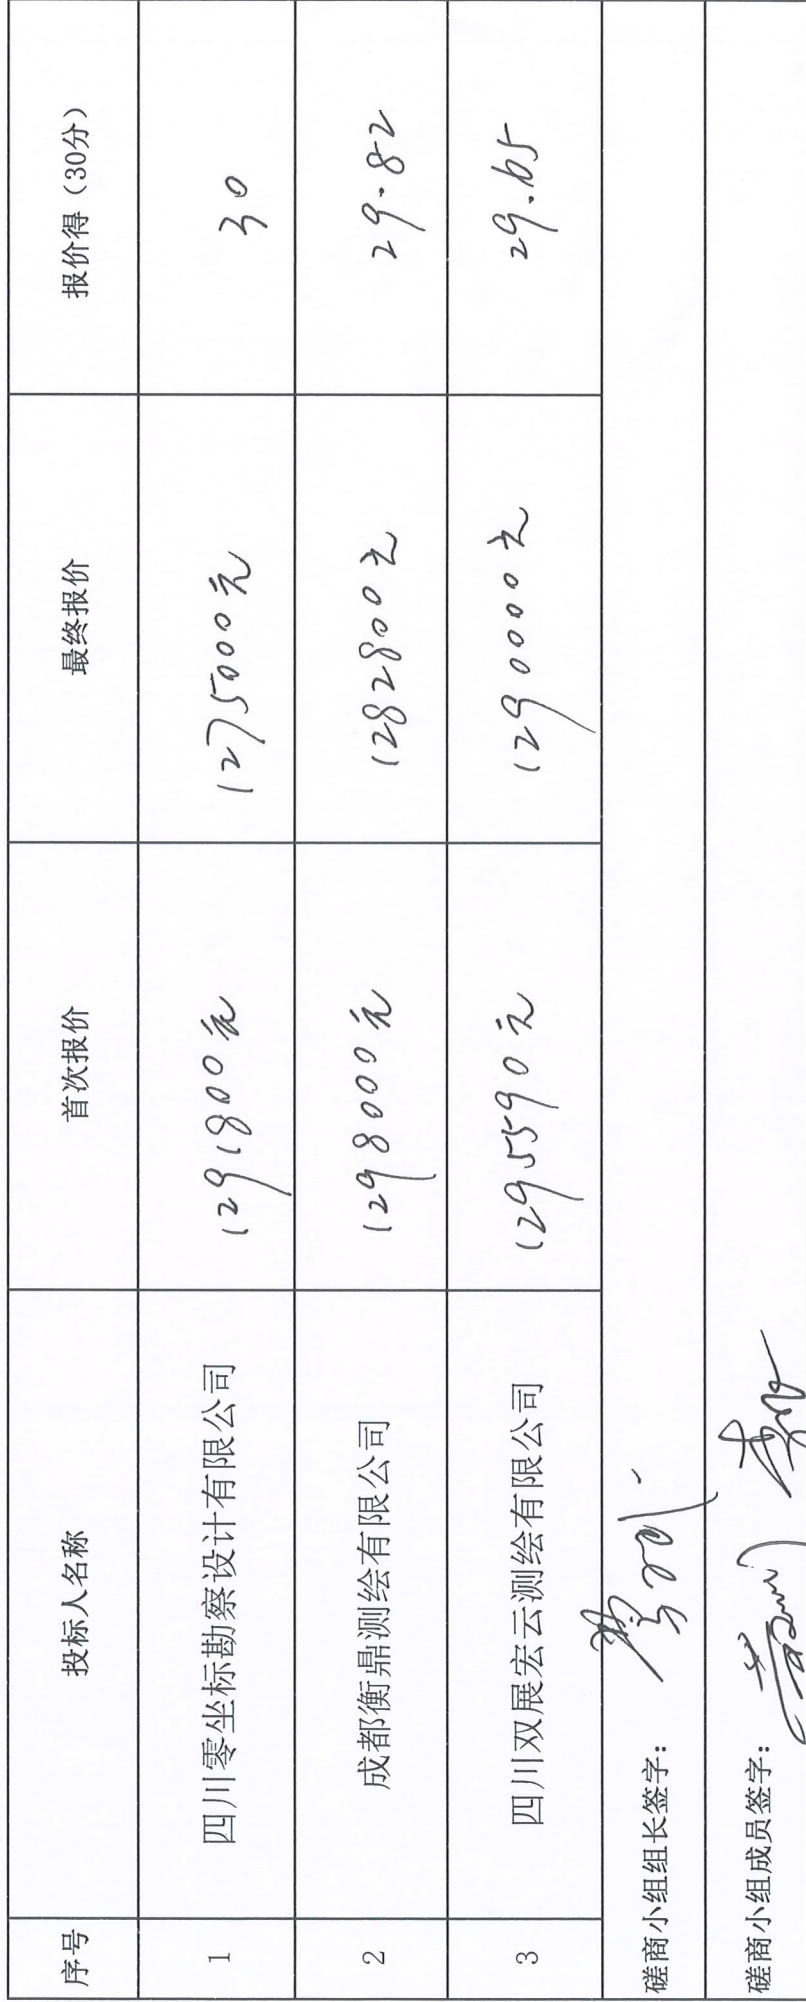 序号 投标人名称 首次报价 最终报价 报价得（30分）
1 四川零坐标勘察设计有限公司 1291800元 1275000元 30
2 成都衡鼎测绘有限公司 1298000元 1282800元 29.82
3 四川双展宏云测绘有限公司 1295590元 1290000元 29.65
磋商小组组长签字：
磋商小组成员签字：